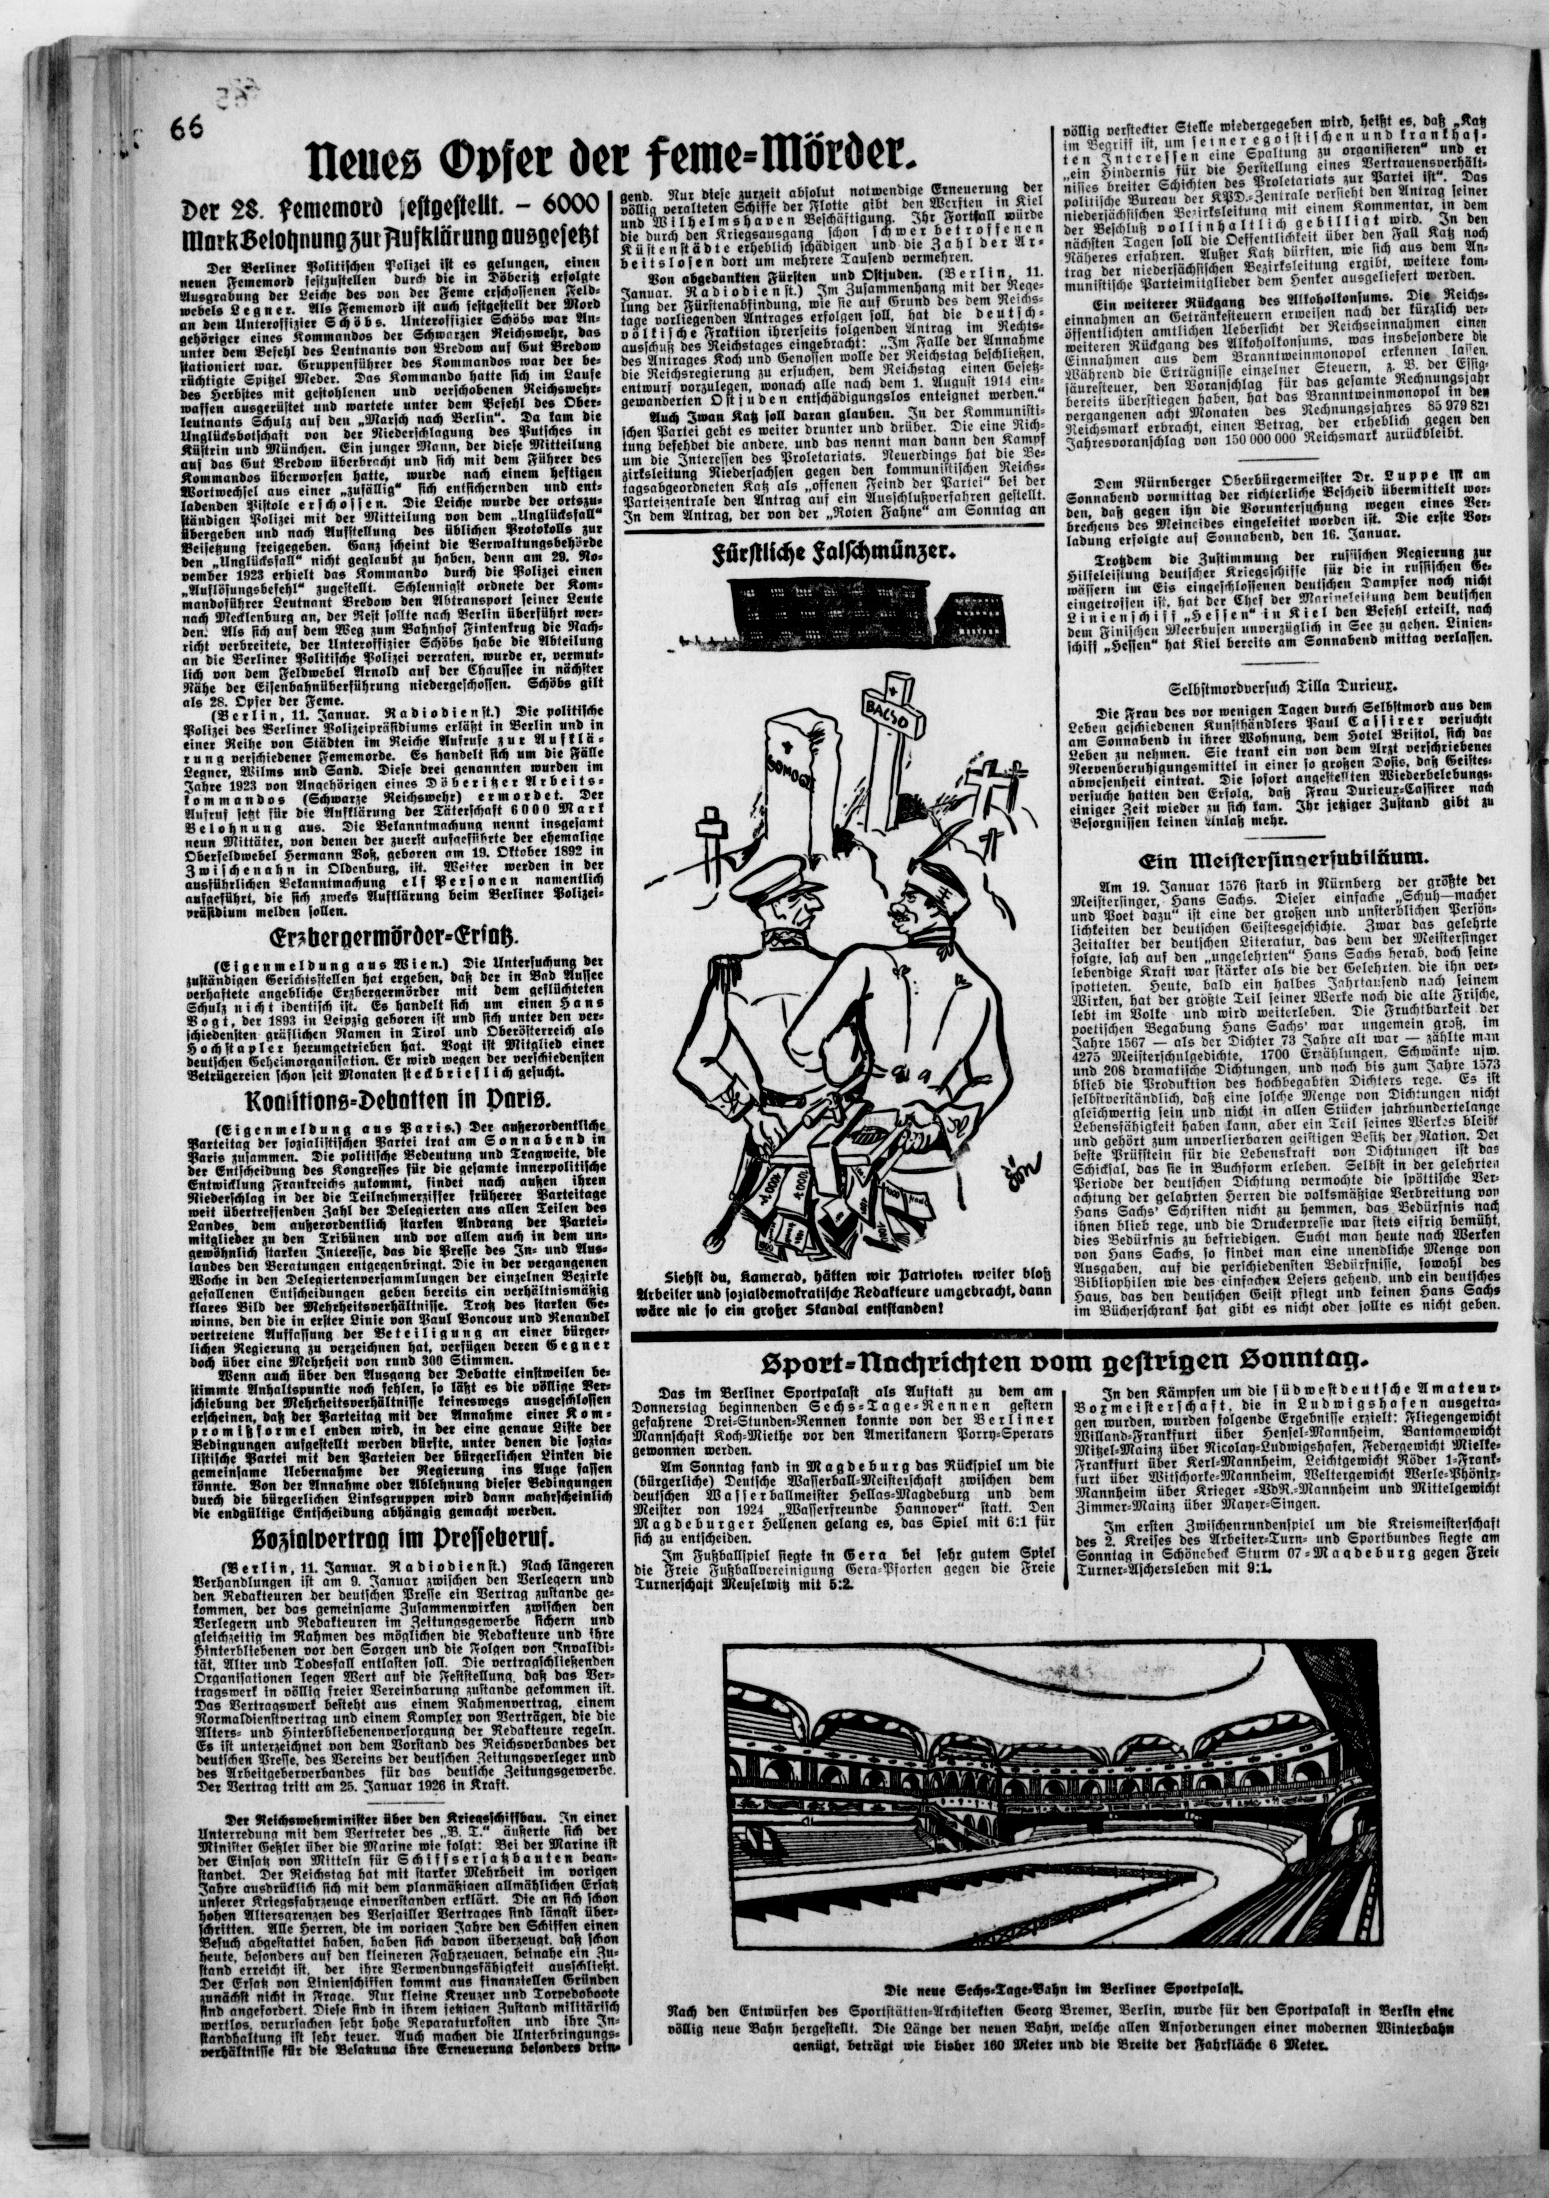 66
Neues Opfer der Feme-Mörder.
Der 28. Fememord festgestellt. – 6000
Mark Belohnung zur Aufklärung ausgesetzt
Der Berliner Politischen Polizei ist es gelungen, einen
neuen Fememord festzustellen durch die in Döberitz erfolgte
Ausgrabung der Leiche des von der Feme erschossenen Feld-
webels Legner. Als Fememord ist auch festgestellt der Mord
an dem Unteroffizier Schöbs. Unteroffizier Schöbs war An-
gehöriger eines Kommandos der Schwarzen Reichswehr, das
unter dem Befehl des Leutnants von Bredow auf Gut Bredow
stationiert war. Gruppenführer des Kommandos war der be-
rüchtigte Spitzel Meder. Das Kommando hatte sich im Laufe
des Herbstes mit gestohlenen und verschobenen Reichswehr-
waffen ausgerüstet und wartete unter dem Befehl des Ober-
leutnants Schulz auf den „Marsch nach Berlin". Da kam die
Unglücksbotschaft von der Niederschlagung des Putsches in
Küstrin und München. Ein junger Mann, der diese Mitteilung
auf das Gut Bredow überbracht und sich mit dem Führer des
Kommandos überworfen hatte, wurde nach einem heftigen
Wortwechsel aus einer „zufällig" sich entsichernden und ent-
ladenden Pistole erschossen. Die Leiche wurde der ortszu-
ständigen Polizei mit der Mitteilung von dem „Unglücksfall"
übergeben und nach Aufstellung des üblichen Protokolls zur
Beisetzung freigegeben. Ganz scheint die Verwaltungsbehörde
den „Unglücksfall" nicht geglaubt zu haben, denn am 29. No-
vember 1923 erhielt das Kommando durch die Polizei einen
„Auflösungsbefehl" zugestellt. Schlennigst ordnete der Kom-
mandoführer Leutnant Bredow den Abtransport seiner Leute
nach Mecklenburg an, der Rest sollte nach Berlin überführt wer-
den. Als sich auf dem Weg zum Bahnhof Finkenkrug die Nach-
richt verbreitete, der Unteroffizier Schöbs habe die Abteilung
an die Berliner Politische Polizei verraten, wurde er, vermut-
lich von dem Feldwebel Arnold auf der Chaussee in nächster
Nähe der Eisenbahnüberführung niedergeschossen. Schöbs gilt
als 28. Opfer der Feme.
(Berlin, 11. Januar. Radiodienst.) Die politische
Polizei des Berliner Polizeipräsidiums erläßt in Berlin und in
einer Reihe von Städten im Reiche Aufrufe zur Aufklä-
rung verschiedener Fememorde. Es handelt sich um die Fälle
Legner, Wilms und Sand. Diese drei genannten wurden im
Jahre 1923 von Angehörigen eines Döberitzer Arbeits-
kommandos (Schwarze Reichswehr) ermordet. Der
Aufruf setzt für die Aufklärung der Täterschaft 6000 Mark
Belohnung aus. Die Bekanntmachung nennt insgesamt
neun Mittäter, von denen der zuerst aufgeführte der ehemalige
Oberfeldwebel Hermann Voß, geboren am 19. Oktober 1892 in
Zwischenahn in Oldenburg, ist. Weiter werden in der
ausführlichen Bekanntmachung elf Personen namentlich
aufgeführt, die sich zwecks Aufklärung beim Berliner Polizei-
präsidium melden sollen.
Erzbergermörder-Ersatz.
(Eigenmeldung aus Wien.) Die Untersuchung der
zuständigen Gerichtsstellen hat ergeben, daß der in Bad Aussee
verhaftete angebliche Erzbergermörder mit dem geflüchteten
Schulz nicht identisch ist. Es handelt sich um einen Hans
Vogt, der 1893 in Leipzig geboren ist und sich unter den ver-
schiedensten gräflichen Namen in Tirol und Oberösterreich als
Hochstapler herumgetrieben hat. Vogt ist Mitglied einer
deutschen Geheimorganisation. Er wird wegen der verschiedensten
Betrügereien schon seit Monaten steckbrieflich gesucht.
Koalitions-Debatten in Paris.
(Eigenmeldung aus Paris.) Der außerordentliche
Parteitag der sozialistischen Partei trat am Sonnabend in
Paris zusammen. Die politische Bedeutung und Tragweite, die
der Entscheidung des Kongresses für die gesamte innerpolitische
Entwicklung Frankreichs zukommt, findet nach außen ihren
Niederschlag in der die Teilnehmerziffer früherer Parteitage
weit übertreffenden Zahl der Delegierten aus allen Teilen des
Landes, dem außerordentlich starken Andrang der Partei-
mitglieder zu den Tribünen und vor allem auch in dem un-
gewöhnlich starken Interesse, das die Presse des In- und Aus-
landes den Beratungen entgegenbringt. Die in der vergangenen
Woche in den Delegiertenversammlungen der einzelnen Bezirke
gefallenen Entscheidungen geben bereits ein verhältnismäßig
klares Bild der Mehrheitsverhältnisse. Trotz des starken Ge-
winns, den die in erster Linie von Paul Boncour und Renaudel
vertretene Auffassung der Beteiligung an einer bürger-
lichen Regierung zu verzeichnen hat, verfügen deren Gegner
doch über eine Mehrheit von rund 300 Stimmen.
Wenn auch über den Ausgang der Debatte einstweilen be-
stimmte Anhaltspunkte noch fehlen, so läßt es die völlige Ver-
schiebung der Mehrheitsverhältnisse keineswegs ausgeschlossen
erscheinen, daß der Parteitag mit der Annahme einer Kom-
promißformel enden wird, in der eine genaue Liste der
Bedingungen aufgestellt werden dürfte, unter denen die sozia-
listische Partei mit den Parteien der bürgerlichen Linken die
gemeinsame Uebernahme der Regierung ins Auge fassen
könnte. Von der Annahme oder Ablehnung dieser Bedingungen
durch die bürgerlichen Linksgruppen wird dann wahrscheinlich
die endgültige Entscheidung abhängig gemacht werden.
Sozialvertrag im Presseberuf.
(Berlin, 11. Januar. Radiodienst.) Nach längeren
Verhandlungen ist am 9. Januar zwischen den Verlegern und
den Redakteuren der deutschen Presse ein Vertrag zustande ge-
kommen, der das gemeinsame Zusammenwirken zwischen den
Verlegern und Redakteuren im Zeitungsgewerbe sichern und
gleichzeitig im Rahmen des möglichen die Redakteure und ihre
Hinterbliebenen vor den Sorgen und die Folgen von Invalidi-
tät, Alter und Todesfall entlasten soll. Die vertragschließenden
Organisationen legen Wert auf die Feststellung, daß das Ver-
tragswerk in völlig freier Vereinbarung zustande gekommen ist.
Das Vertragswerk besteht aus einem Rahmenvertrag, einem
Normaldienstvertrag und einem Komplex von Verträgen, die die
Alters- und Hinterbliebenenversorgung der Redakteure regeln.
Es ist unterzeichnet von dem Vorstand des Reichsverbandes der
deutschen Presse, des Vereins der deutschen Zeitungsverleger und
des Arbeitgeberverbandes für das deutsche Zeitungsgewerbe.
Der Vertrag tritt am 25. Januar 1926 in Kraft.
Der Reichswehrminister über den Kriegsschiffbau. In einer
Unterredung mit dem Vertreter des „B. T." äußerte sich der
Minister Geßler über die Marine wie folgt: Bei der Marine ist
der Einsatz von Mitteln für Schiffsersatzbauten bean-
standet. Der Reichstag hat mit starker Mehrheit im vorigen
Jahre ausdrücklich sich mit dem planmäßigen allmählichen Ersatz
unserer Kriegsfahrzeuge einverstanden erklärt. Die an sich schon
hohen Altersgrenzen des Versailler Vertrages sind längst über-
schritten. Alle Herren, die im vorigen Jahre den Schiffen einen
Besuch abgestattet haben, haben sich davon überzeugt, daß schon
heute, besonders auf den kleineren Fahrzeugen, beinahe ein Zu-
stand erreicht ist, der ihre Verwendungsfähigkeit ausschließt.
Der Ersatz von Linienschiffen kommt aus finanziellen Gründen
zunächst nicht in Frage. Nur kleine Kreuzer und Torpedoboote
sind angefordert. Diese sind in ihrem jetzigen Zustand militärisch
wertlos, verursachen sehr hohe Reparaturkosten und ihre In-
standhaltung ist sehr teuer. Auch machen die Unterbringungs-
verhältnisse für die Besatzung ihre Erneuerung besonders drin-
gend. Nur diese zurzeit absolut notwendige Erneuerung der
völlig veralteten Schiffe der Flotte gibt den Werften in Kiel
und Wilhelmshaven Beschäftigung. Ihr Fortfall würde
die durch den Kriegsausgang schon schwer betroffenen
Küstenstädte erheblich schädigen und die Zahl der Ar-
beitslosen dort um mehrere Tausend vermehren.
Von abgedankten Fürsten und Ostjuden. (Berlin, 11.
Januar. Radiodienst.) Im Zusammenhang mit der Rege-
lung der Fürstenabfindung, wie sie auf Grund des dem Reichs-
tage vorliegenden Antrages erfolgen soll, hat die deutsch-
völkische Fraktion ihrerseits folgenden Antrag im Rechts-
ausschuß des Reichstages eingebracht: „Im Falle der Annahme
des Antrages Koch und Genossen wolle der Reichstag beschließen,
die Reichsregierung zu ersuchen, dem Reichstag einen Gesetz-
entwurf vorzulegen, wonach alle nach dem 1. August 1914 ein-
gewanderten Ostjuden entschädigungslos enteignet werden."
Auch Iwan Katz soll daran glauben. In der Kommunisti-
schen Partei geht es weiter drunter und drüber. Die eine Rich-
tung befehdet die andere, und das nennt man dann den Kampf
um die Interessen des Proletariats. Neuerdings hat die Be-
zirksleitung Niedersachsen gegen den kommunistischen Reichs-
tagsabgeordneten Katz als „offenen Feind der Partei" bei der
Parteizentrale den Antrag auf ein Ausschlußverfahren gestellt.
In dem Antrag, der von der „Roten Fahne" am Sonntag an
völlig versteckter Stelle wiedergegeben wird, heißt es, daß „Katz
im Begriff ist, um seiner egoistischen und krankhaf-
ten Interessen eine Spaltung zu organisieren" und er
„ein Hindernis für die Herstellung eines Vertrauensverhält-
nisses breiter Schichten des Proletariats zur Partei ist". Das
politische Bureau der KPD.-Zentrale versieht den Antrag seiner
niedersächsischen Bezirksleitung mit einem Kommentar, in dem
der Beschluß vollinhaltlich gebilligt wird. In den
nächsten Tagen soll die Oeffentlichkeit über den Fall Katz noch
Näheres erfahren. Außer Katz dürften, wie sich aus dem An-
trag der niedersächsischen Bezirksleitung ergibt, weitere kom-
munistische Parteimitglieder dem Henker ausgeliefert werden.
Ein weiterer Rückgang des Alkoholkonsums. Die Reichs-
einnahmen an Getränkesteuern erweisen nach der kürzlich ver-
öffentlichten amtlichen Uebersicht der Reichseinnahmen einen
weiteren Rückgang des Alkoholkonsums, was insbesondere die
Einnahmen aus dem Branntweinmonopol erkennen lassen.
Während die Erträgnisse einzelner Steuern, z. B. der Essig-
säuresteuer, den Voranschlag für das gesamte Rechnungsjahr
bereits überstiegen haben, hat das Branntweinmonopol in den
vergangenen acht Monaten des Rechnungsjahres 85 979 821
Reichsmark erbracht, einen Betrag, der erheblich gegen den
Jahresvoranschlag von 150 000 000 Reichsmark zurückbleibt.
Dem Nürnberger Oberbürgermeister Dr. Luppe ist am
Sonnabend vormittag der richterliche Bescheid übermittelt wor-
den, daß gegen ihn die Voruntersuchung wegen eines Ver-
brechens des Meineides eingeleitet worden ist. Die erste Vor-
ladung erfolgte auf Sonnabend, den 16. Januar.
Trotzdem die Zustimmung der russischen Regierung zur
Hilfeleistung deutscher Kriegsschiffe für die in russischen Ge-
wässern im Eis eingeschlossenen deutschen Dampfer noch nicht
eingetroffen ist, hat der Chef der Marineleitung dem deutschen
Linienschiff „Hessen" in Kiel den Befehl erteilt, nach
dem Finischen Meerbusen unverzüglich in See zu gehen. Linien-
schiff „Hessen" hat Kiel bereits am Sonnabend mittag verlassen.
Selbstmordversuch Tilla Durieux.
Die Frau des vor wenigen Tagen durch Selbstmord aus dem
Leben geschiedenen Kunsthändlers Paul Cassirer versuchte
am Sonnabend in ihrer Wohnung, dem Hotel Bristol, sich das
Leben zu nehmen. Sie trank ein von dem Arzt verschriebenes
Nervenberuhigungsmittel in einer so großen Dosis, daß Geistes-
abwesenheit eintrat. Die sofort angestellten Wiederbelebungs-
versuche hatten den Erfolg, daß Frau Durieux-Cassirer nach
einiger Zeit wieder zu sich kam. Ihr jetziger Zustand gibt zu
Besorgnissen keinen Anlaß mehr.
Ein Meistersingerjubiläum.
Am 19. Januar 1576 starb in Nürnberg der größte der
Meistersinger, Hans Sachs. Dieser einfache „Schuh—macher
und Poet dazu" ist eine der großen und unsterblichen Persön-
lichkeiten der deutschen Geistesgeschichte. Zwar das gelehrte
Zeitalter der deutschen Literatur, das dem der Meistersinger
folgte, sah auf den „ungelehrten" Hans Sachs herab, doch seine
lebendige Kraft war stärker als die der Gelehrten, die ihn ver-
spotteten. Heute, bald ein halbes Jahrtausend nach seinem
Wirken, hat der größte Teil seiner Werke noch die alte Frische,
lebt im Volke und wird weiterleben. Die Fruchtbarkeit der
poetischen Begabung Hans Sachs' war ungemein groß, im
Jahre 1567 — als der Dichter 73 Jahre alt war — zählte man
4275 Meisterschulgedichte, 1700 Erzählungen, Schwänke usw.
und 208 dramatische Dichtungen, und noch bis zum Jahre 1573
blieb die Produktion des hochbegabten Dichters rege. Es ist
selbstverständlich, daß eine solche Menge von Dichtungen nicht
gleichwertig sein und nicht in allen Stücken jahrhundertelange
Lebensfähigkeit haben kann, aber ein Teil seines Werkes bleibt
und gehört zum unverlierbaren geistigen Besitz der Nation. Der
beste Prüfstein für die Lebenskraft von Dichtungen ist das
Schicksal, das sie in Buchform erleben. Selbst in der gelehrten
Periode der deutschen Dichtung vermochte die spöttische Ver-
achtung der gelahrten Herren die volksmäßige Verbreitung von
Hans Sachs' Schriften nicht zu hemmen, das Bedürfnis nach
ihnen blieb rege, und die Druckerpresse war stets eifrig bemüht,
dies Bedürfnis zu befriedigen. Sucht man heute nach Werken
von Hans Sachs, so findet man eine unendliche Menge von
Ausgaben, auf die verschiedensten Bedürfnisse, sowohl des
Bibliophilen wie des einfachen Lesers gehend, und ein deutsches
Haus, das den deutschen Geist pflegt und keinen Hans Sachs
im Bücherschrank hat gibt es nicht oder sollte es nicht geben.
Fürstliche Falschmünzer.
BACSO
SOMOGYI
Siehst du, Kamerad, hätten wir Patrioten weiter bloß
Arbeiter und sozialdemokratische Redakteure umgebracht, dann
wäre nie so ein großer Skandal entstanden!
Sport-Nachrichten vom gestrigen Sonntag.
Das im Berliner Sportpalast als Auftakt zu dem am
Donnerstag beginnenden Sechs-Tage-Rennen gestern
gefahrene Drei-Stunden-Rennen konnte von der Berliner
Mannschaft Koch-Miethe vor den Amerikanern Porry-Sperars
gewonnen werden.
Am Sonntag fand in Magdeburg das Rückspiel um die
(bürgerliche) Deutsche Wasserball-Meisterschaft zwischen dem
deutschen Wasserballmeister Hellas-Magdeburg und dem
Meister von 1924 „Wasserfreunde Hannover" statt. Den
Magdeburger Hellenen gelang es, das Spiel mit 6:1 für
sich zu entscheiden.
Im Fußballspiel siegte in Gera bei sehr gutem Spiel
die Freie Fußballvereinigung Gera-Pforten gegen die Freie
Turnerschaft Meuselwitz mit 5:2.
In den Kämpfen um die südwestdeutsche Amateur-
Boxmeisterschaft, die in Ludwigshafen ausgetra-
gen wurden, wurden folgende Ergebnisse erzielt: Fliegengewicht
Willand-Frankfurt über Hensel-Mannheim, Bantamgewicht
Mitzel-Mainz über Nicolay-Ludwigshafen, Federgewicht Mielke-
Frankfurt über Kerl-Mannheim, Leichtgewicht Röder 1-Frank-
furt über Witschorke-Mannheim, Weltergewicht Werle-Phönix-
Mannheim über Krieger -VdR.-Mannheim und Mittelgewicht
Zimmer-Mainz über Mayer-Singen.
Im ersten Zwischenrundenspiel um die Kreismeisterschaft
des 2. Kreises des Arbeiter-Turn- und Sportbundes siegte am
Sonntag in Schönebeck Sturm 07-Magdeburg gegen Freie
Turner-Aschersleben mit 9:1.
Die neue Sechs-Tage-Bahn im Berliner Sportpalast.
Nach den Entwürfen des Sportstätten-Architekten Georg Bremer, Berlin, wurde für den Sportpalast in Berlin eine
völlig neue Bahn hergestellt. Die Länge der neuen Bahn, welche allen Anforderungen einer modernen Winterbahn
genügt, beträgt wie bisher 160 Meter und die Breite der Fahrfläche 6 Meter.